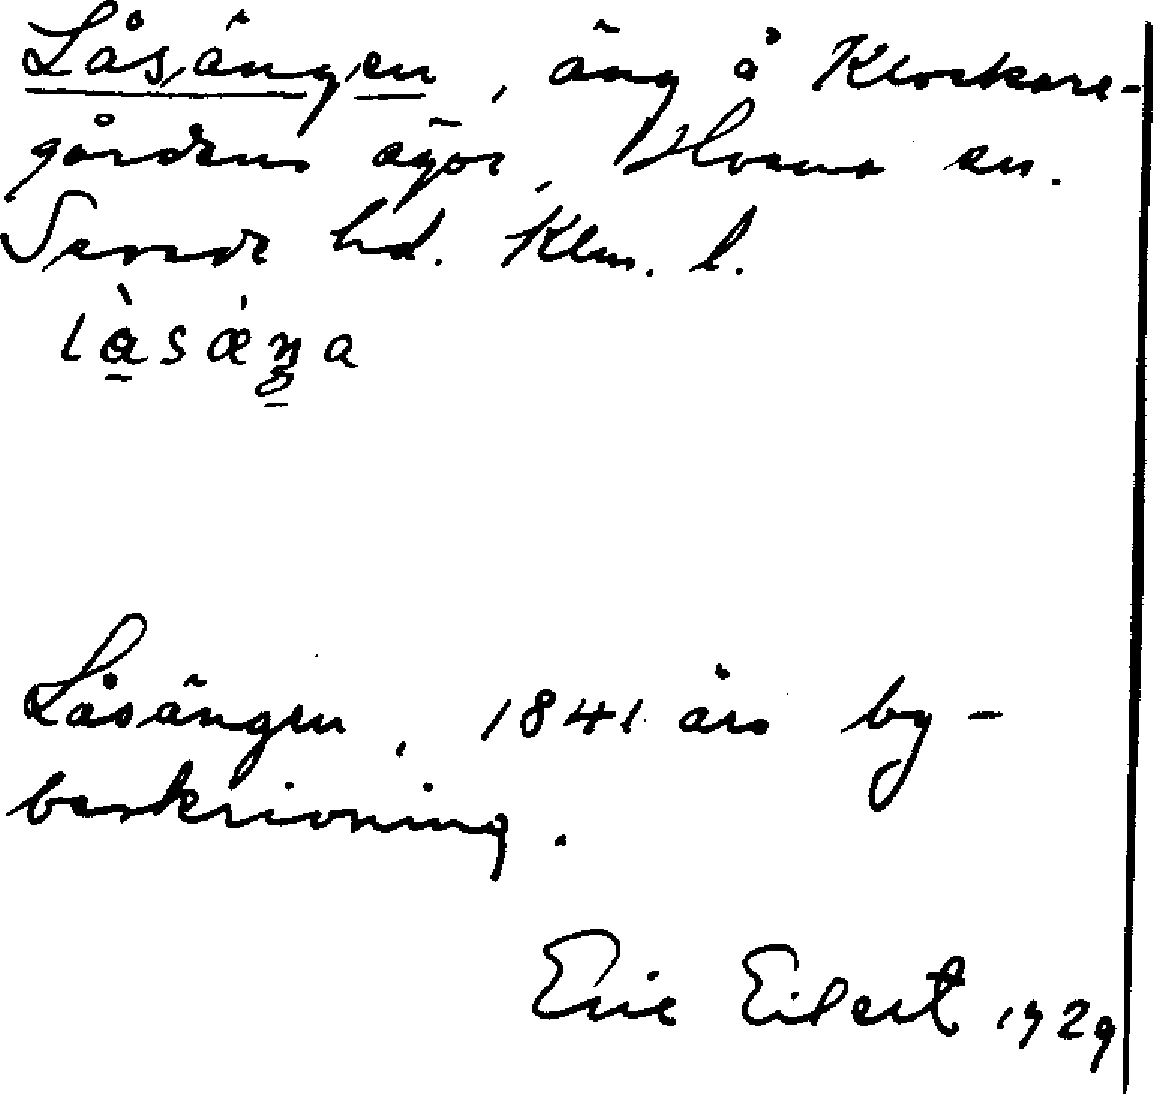 Låsängen, äng å Klockare-
gårdens ägor, Hossmo sn.
S. Möre hd. Klm. l.
Låsängen, 1841 års by-
beskrivning.
Eric Eilert 1929